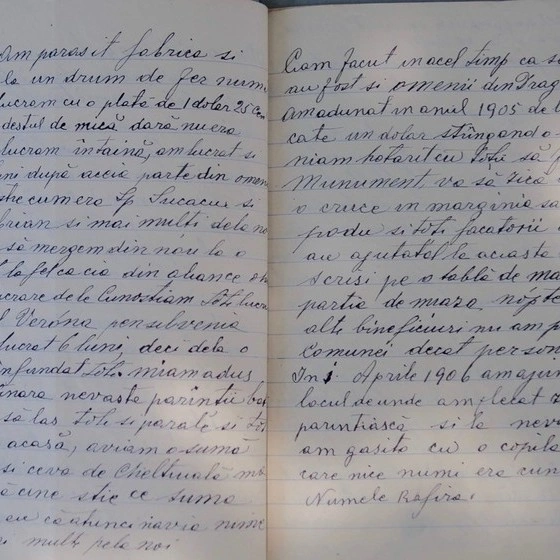 Am parasit fabrica si
la un drum de fer num
lucram cu o plata de 1 dolar 25 cen
destul de mică dară nu era
lucram în taină, am lucrat si
luni după aceia parte din omen
cum era Sp Sucaciu si
brian si mai multi dela no
să mergem din nou la o
t la fel ca cia din aliance
lucrare dele Cunostiam toti lucra
Veróna pensilvenia
lucrat 6 luni, deci dela o
miam adus
tinara nevasta parintii
să las toti si parale si
acasă, aviam o sumă
si ceva de Cheltuială
cine stie ce suma
eu că atunci navia nime
i multi pela noi
Ciam facut in acel timp ca să
au fost si omenii din Drag
Amadunat in anul 1905 de
cate un dolar stringand o
niam hotarit cu toti să
Munument va să zică
o cruce in marginia sa
podu si toti facatorii
au ajutatol la aciasta
scrisi pe o tablă de ma
partia de miaza nópte
alte bineficiuri nu am
Comunei decat person
In 1 Aprile 1906 am ajun
locul de unde am plecat
parintiască si la nev
am gasito cu o copila
care nice numi era cun
Numele Rafira.